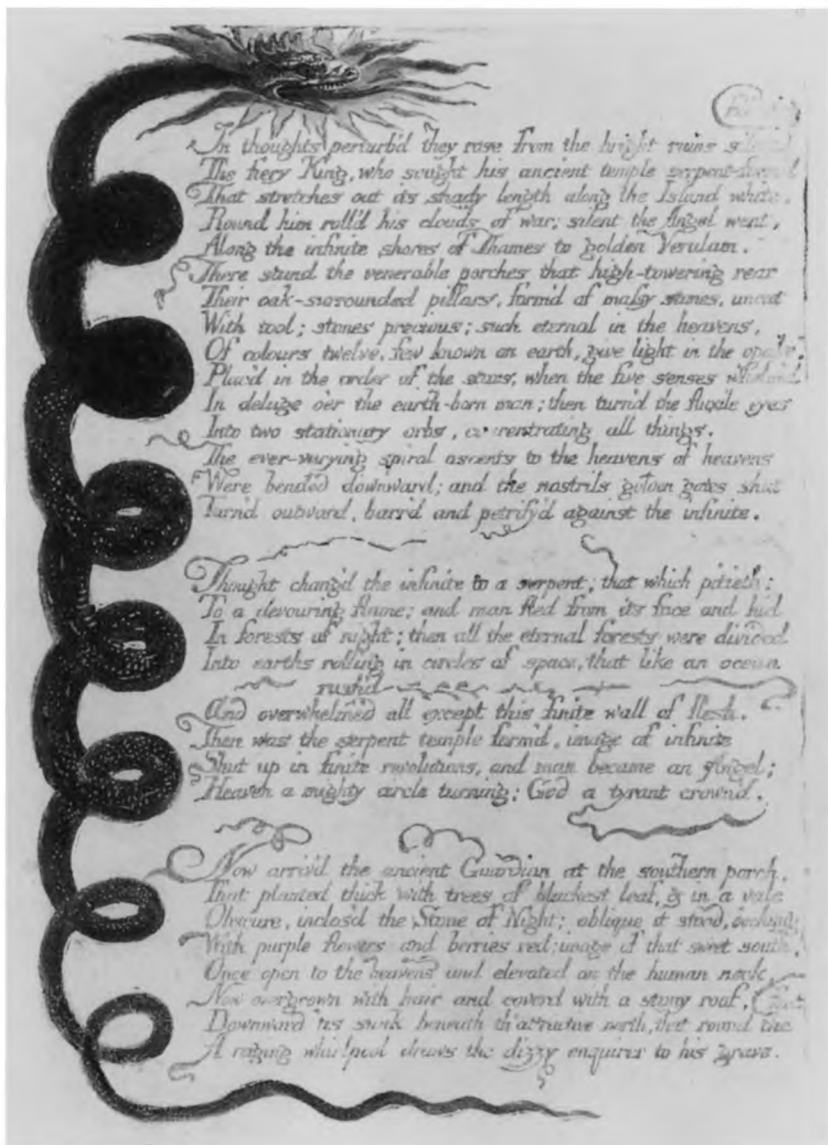 In thoughts perturb'd they rose from the bright ruins
The fiery King, who sought his ancient temple serpent-form'd
That stretches out its shady length along the Island white.
Round him roll'd his clouds of war; silent the Angel went,
Along the infinite shores of Thames to golden Verulam.
There stand the venerable porches that high-towering rear
Their oak-surrounded pillars, form'd of massy stones, uncut
With tool; stones precious; such eternal in the heavens,
Of colours twelve, few known on earth, give light in the opake,
Plac'd in the order of the stars, when the five senses whelm'd
In deluge o'er the earth-born man; then turn'd the fluxile eyes
Into two stationary orbs, concentrating all things.
The ever-varying spiral ascents to the heavens of heavens
Were bended downward; and the nostrils golden gates shut
Turn'd outward, barr'd and petrify'd against the infinite.
Thought chang'd the infinite to a serpent; that which pitieth:
To a devouring flame; and man fled from its face and hid
In forests of night; then all the eternal forests were divided
Into earths rolling in circles of space, that like an ocean
rush'd
And overwhelmed all except this finite wall of flesh.
Then was the serpent temple form'd, image of infinite
Shut up in finite revolutions, and man became an Angel;
Heaven a mighty circle turning; God a tyrant crown'd.
Now arriv'd the ancient Guardian at the southern porch,
That planted thick with trees of blackest leaf, & in a vale
Obscure, inclos'd the Stone of Night; oblique it stood,
With purple flowers and berries red; image of that sweet south,
Once open to the heavens and elevated on the human neck,
Now overgrown with hair and cover'd with a stony roof,
Downward 'tis sunk beneath th' attractive north, that round the
A raging whirlpool draws the dizzy enquirer to his grave.